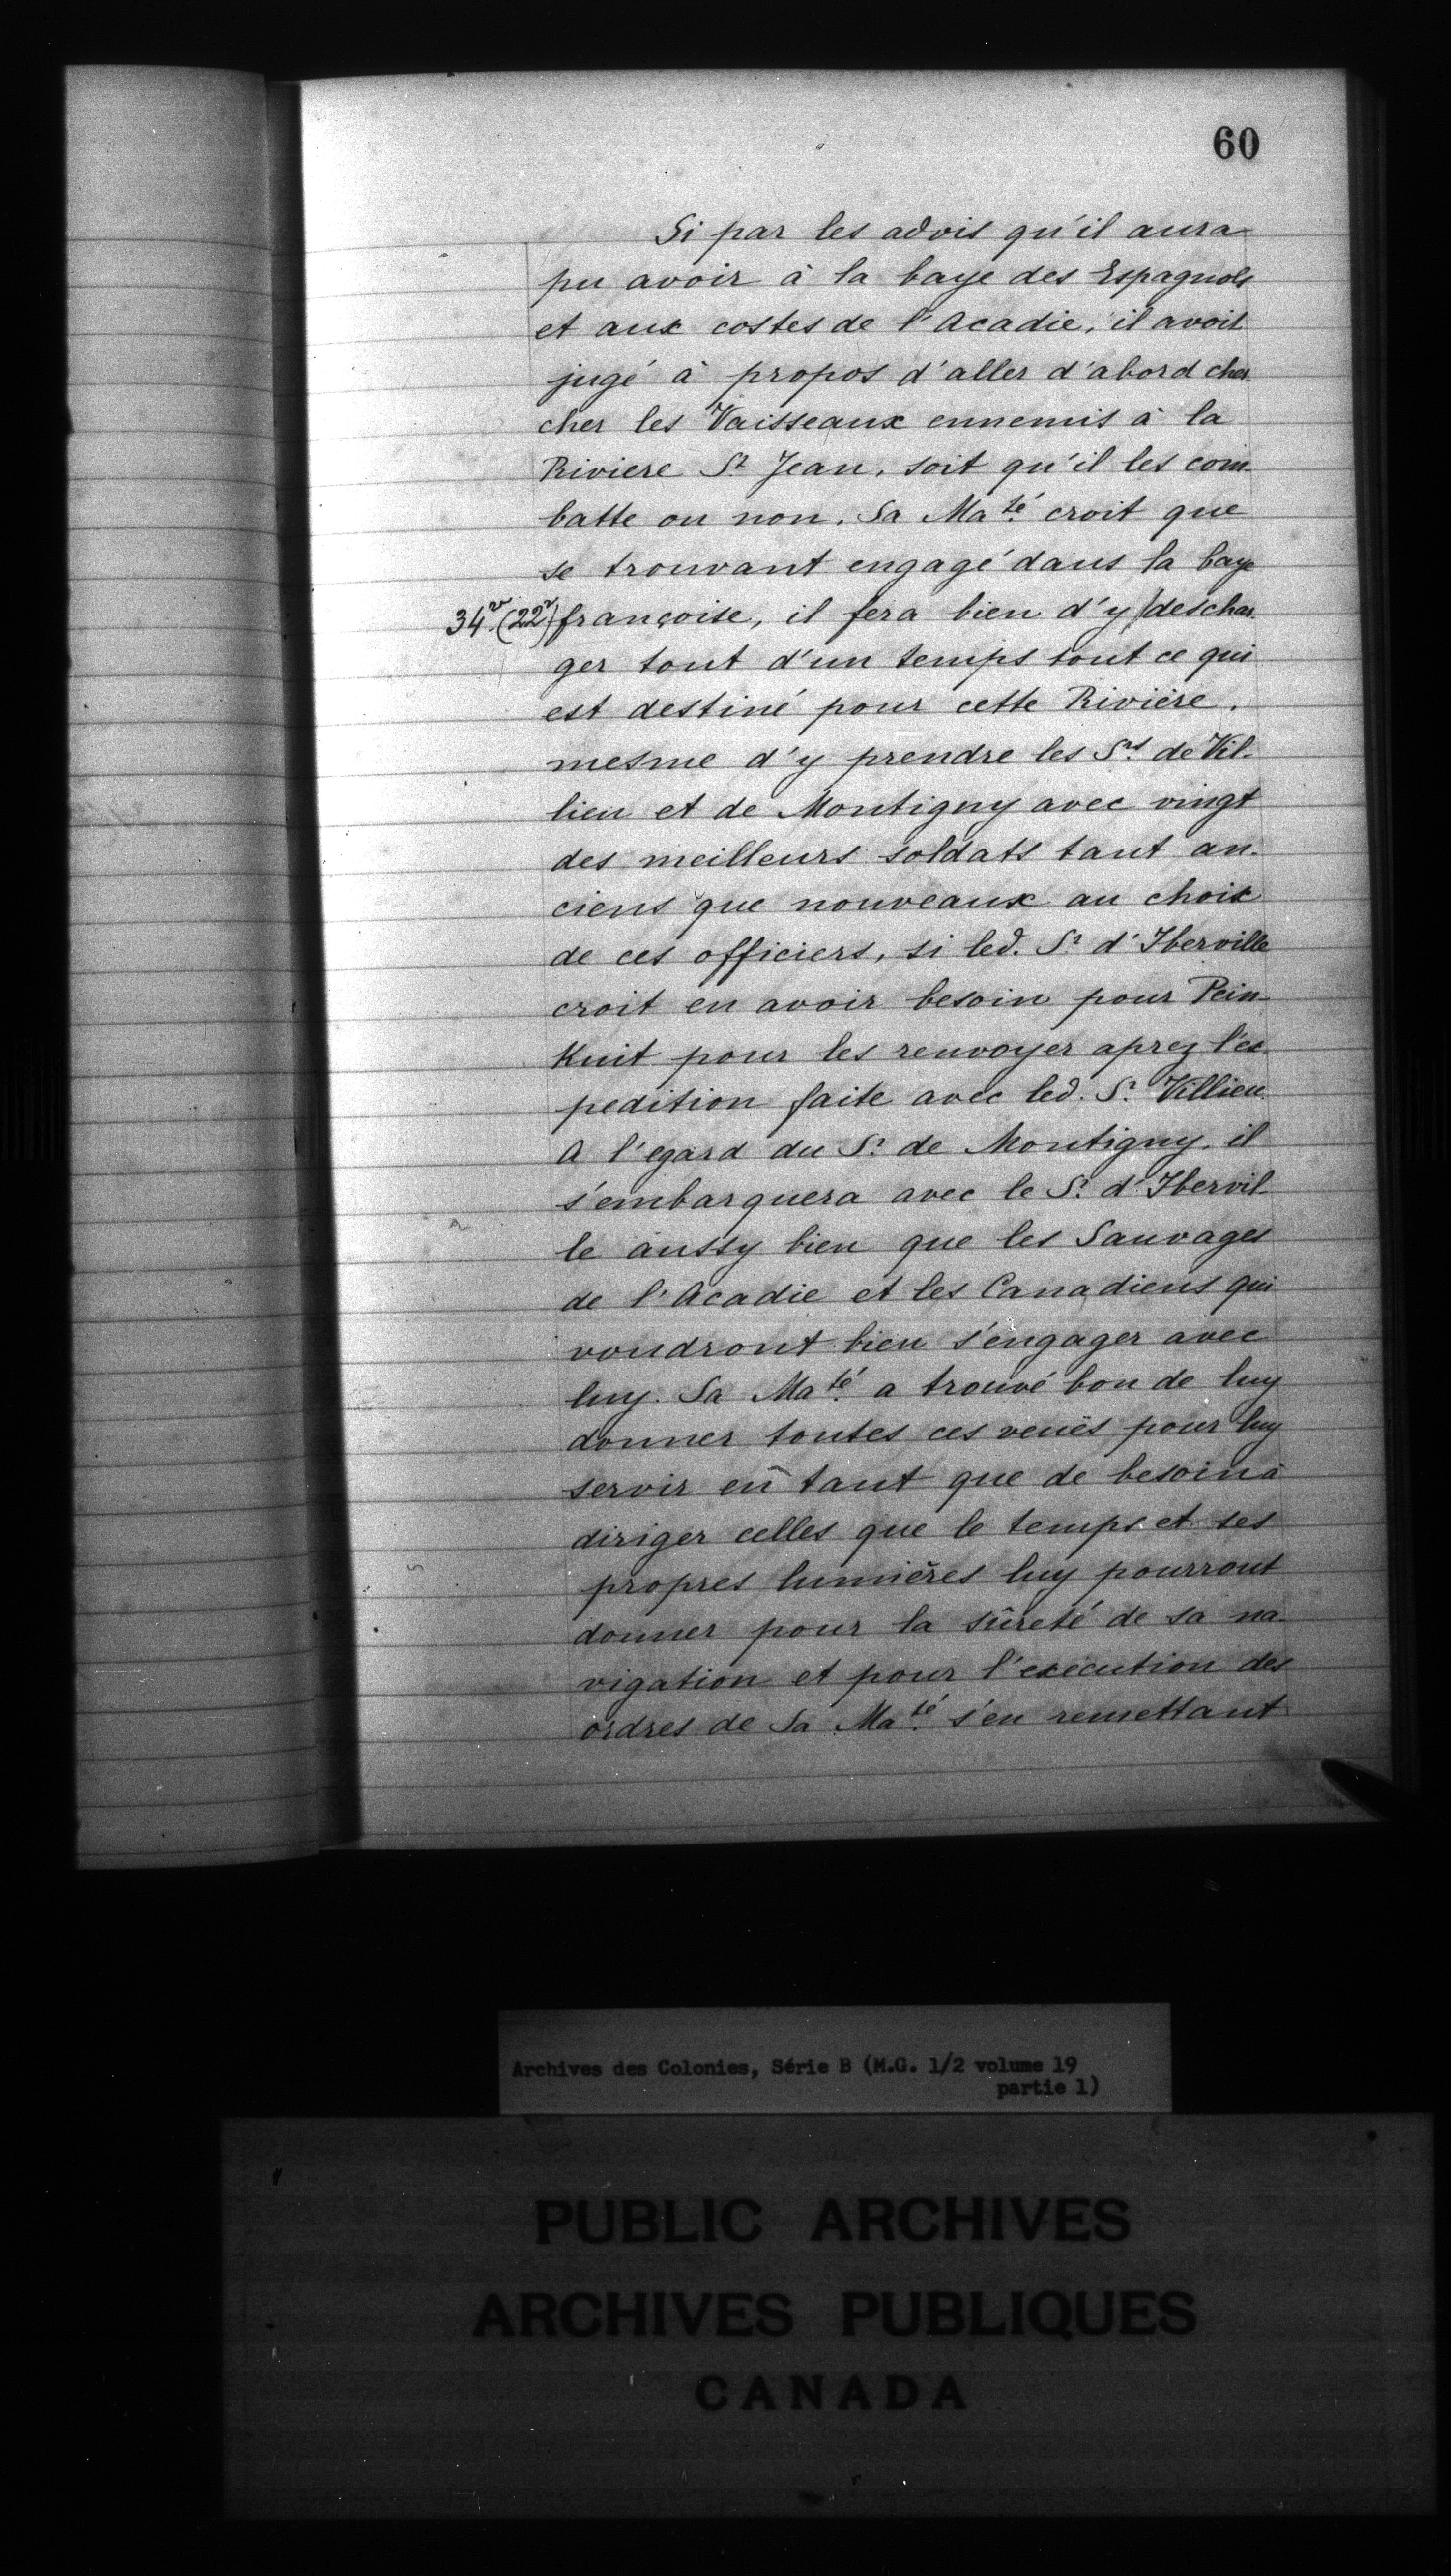 60
Si par les advis qu'il aura
pu avoir à la baye des Espagnols
et aux costes de l'Acadie, il avoit
jugé à propos d'aller d'abord cher-
cher les Vaisseaux ennemis à la
Riviere St Jean, soit qu'il les com-
batte ou non. Sa Maté croit que
se trouvant engagé dans la baye
34v. (22v) françoise, il fera bien d'y /deschar-
ger tout d'un temps tout ce qui
est destiné pour cette Rivière.
mesme d'y prendre les Srs de Vil-
lieu et de Montigny avec vingt
des meilleurs soldats tant an-
ciens que nouveaux au choix
de ces officiers, si led. Sr d'Iberville
croit en avoir besoin pour Pein-
Kuit pour les renvoyer aprez l'ex-
pedition faite avec led. Sr Villieu.
A l'egard du Sr de Montigny. il
s'embarquera avec le Sr d'Ibervil-
le aussy bien que les Sauvages
de l'Acadie et les Canadiens qui
voudront bien s'engager avec
luy. Sa Maté a trouvé bon de luy
donner toutes ces veuës pour luy
servir en tant que de besoin à
diriger celles que le temps et ses
propres lumières luy pourront
donner pour la sûreté de sa na-
vigation et pour l'exécution des
ordres de Sa Maté s'en remettant
Archives des Colonies, Série B (M.G. 1/2 volume 19
partie 1)
PUBLIC ARCHIVES
ARCHIVES PUBLIQUES
CANADA